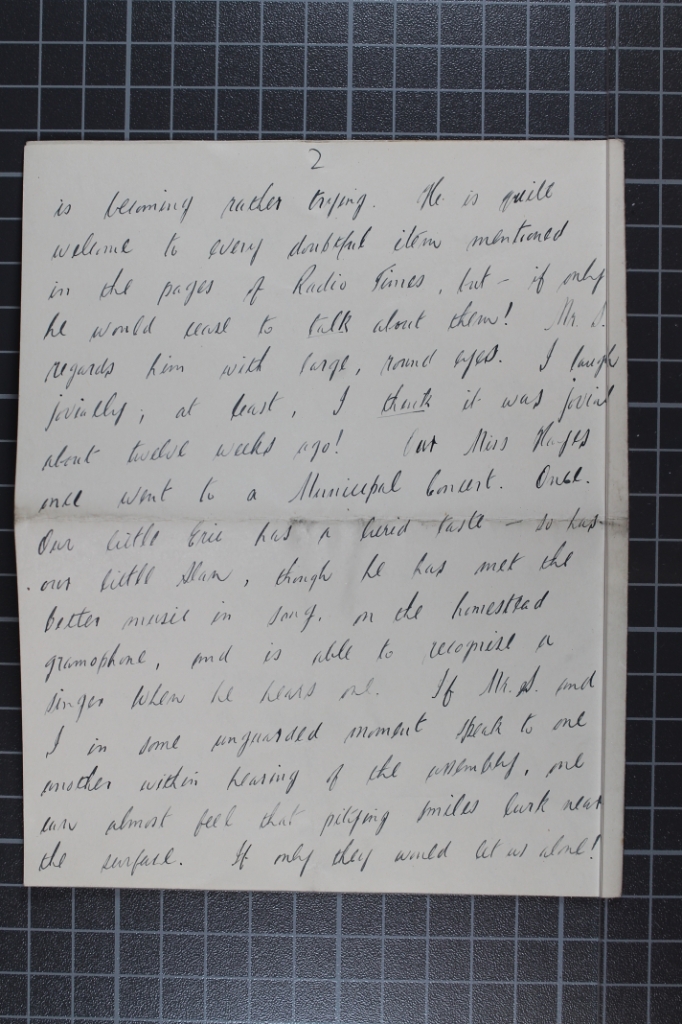 2
is becoming rather trying. He is quite
welcome to every doubtful item mentioned
in the pages of Radio Times, but - if only
he would cease to talk about them! Mr. S.
regards him with large, round eyes. I laugh
jovially; at least, I think it was jovial
about twelve weeks ago! Our Miss Hayes
once went to a Municipal Concert. Once.
Our little Eric has a lurid taste - so has
our little Alan, though he has met the
better music in song, on the homestead
gramophone, and is able to recognise a
singer when he hears one. If Mr. S. and
I in some unguarded moment speak to one
another within hearing of the assembly, one
can almost feel that pitying smiles lurk near
the surface. If only they would let us alone!